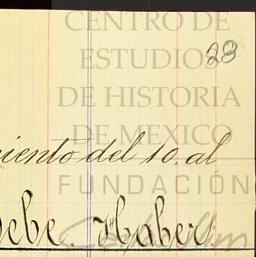 CENTRO DE
ESTUDIOS
28
DE HISTORIA
DE MEXICO
iento del 10. al
FUNDACIÓN
Debe. Haber